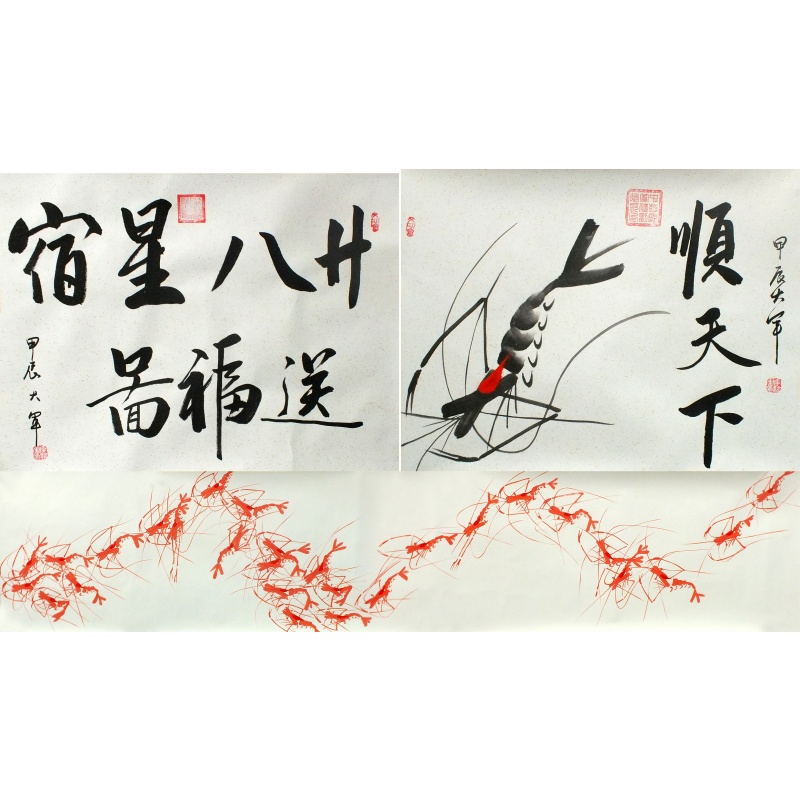 廿八星宿
送福圖
甲辰大軍
甲辰大軍
順天下